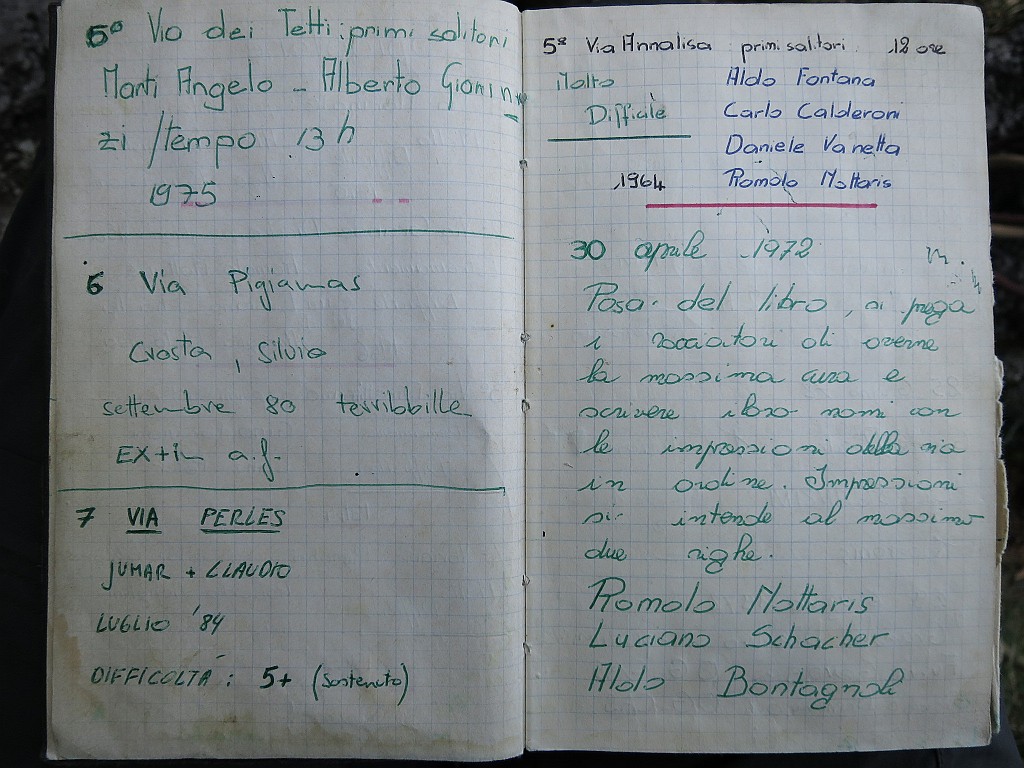 5º Via dei Tetti: primi salitori
Monti Angelo - Alberto Gianin
zi / tempo 13 h
1975
6 Via Pigiamas
Crosta, Silvio
settembre 80 terribbille
EX+in a.f.
7 VIA PERLES
JUMAR + CLAUDIO
LUGLIO '84
DIFFICOLTÀ: 5+ (Sostenuto)
5ª Via Annalisa primi salitori 12 ore
Molto Aldo Fontana
Difficile Carlo Calderoni
Daniele Vanetta
1964 Romolo Nottaris
30 aprile 1972
Posa del libro, si prega
i rocciatori di averne
la massima cura e
scrivere i loro nomi con
le impressioni della via
in ordine. Impressioni
si intende al massimo
due righe.
Romolo Nottaris
Luciano Schacher
Aldo